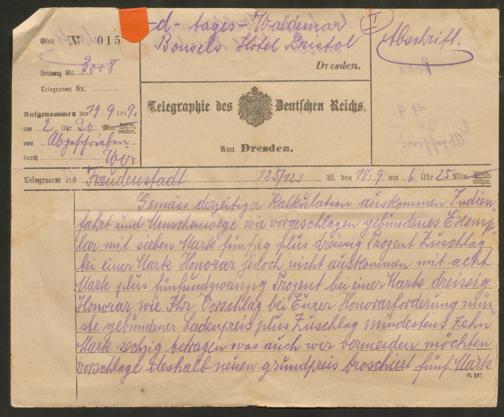 Blatt № 015
Leitung Nr. 2008
Telegramm Nr.
Aufgenommen den 19.9.191
um 2 Uhr 20 Min.
von Abgeschrieben
durch
-d- tages- Waldemar
Bonsels Hotel Bristol
Dresden.
I
Abschrift.
Telegraphie des Deutschen Reichs.
Amt Dresden.
Telegramm aus Freudenstadt 125/123 W. den 18.9 um 6 Uhr 25 Min.
Gemäss derzeitiger Kalkulation auskommen Indien
fahrt und Menschenwege wie vorgeschlagen gebundenes Exemp
lar mit sieben Mark fünfzig plus dreissig Prozent Zuschlag
bei einer Mark Honorar jedoch nicht auskommen mit acht
Mark plus fünfundzwanzig Prozent bei einer Mark dreissig
Honorar wie Ihr Vorschlag bei Eurer Honorarforderung müs
ste gebundener Ladenpreis plus Zuschlag mindestens Zehn
Mark sechzig betragen was auch wir vermeiden möchten
vorschlage deshalb neuen grundpreis broschiert fünf Mark
C. 187.